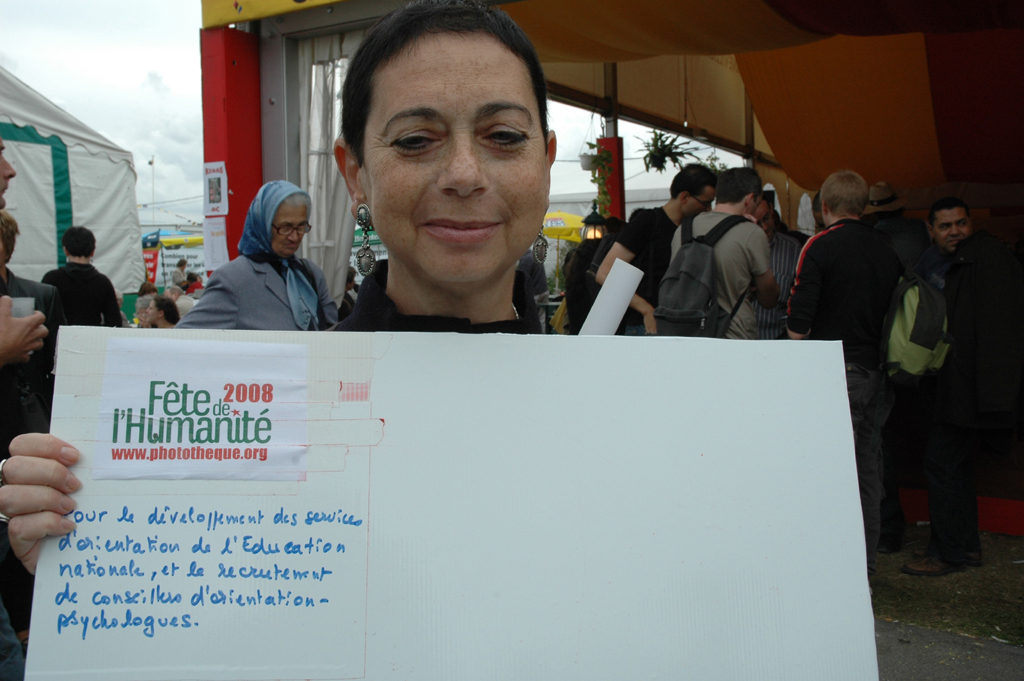 Fête de 2008
l'Humanité
www.phototheque.org
Pour le développement des services
d'orientation de l'Education
nationale, et le recrutement
de conseillers d'orientation-
psychologues.